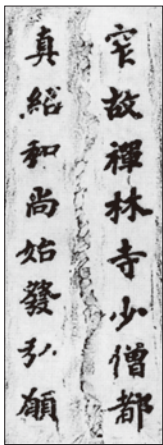 窄故禪林寺少僧都
真紹和尚始發弘願